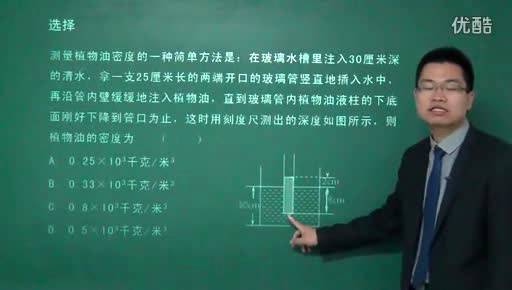 优酷
选择
测量植物油密度的一种简单方法是：在玻璃水槽里注入30厘米深
的清水，拿一支25厘米长的两端开口的玻璃管竖直地插入水中，
再沿管内壁缓缓地注入植物油，直到玻璃管内植物油液柱的下底
面刚好下降到管口为止，这时用刻度尺测出的深度如图所示，则
植物油的密度为 （ ）
A. 0.25×10³千克/米³
B. 0.33×10³千克/米³
C. 0.8×10³千克/米³
D. 0.5×10³千克/米³
2cm
8cm